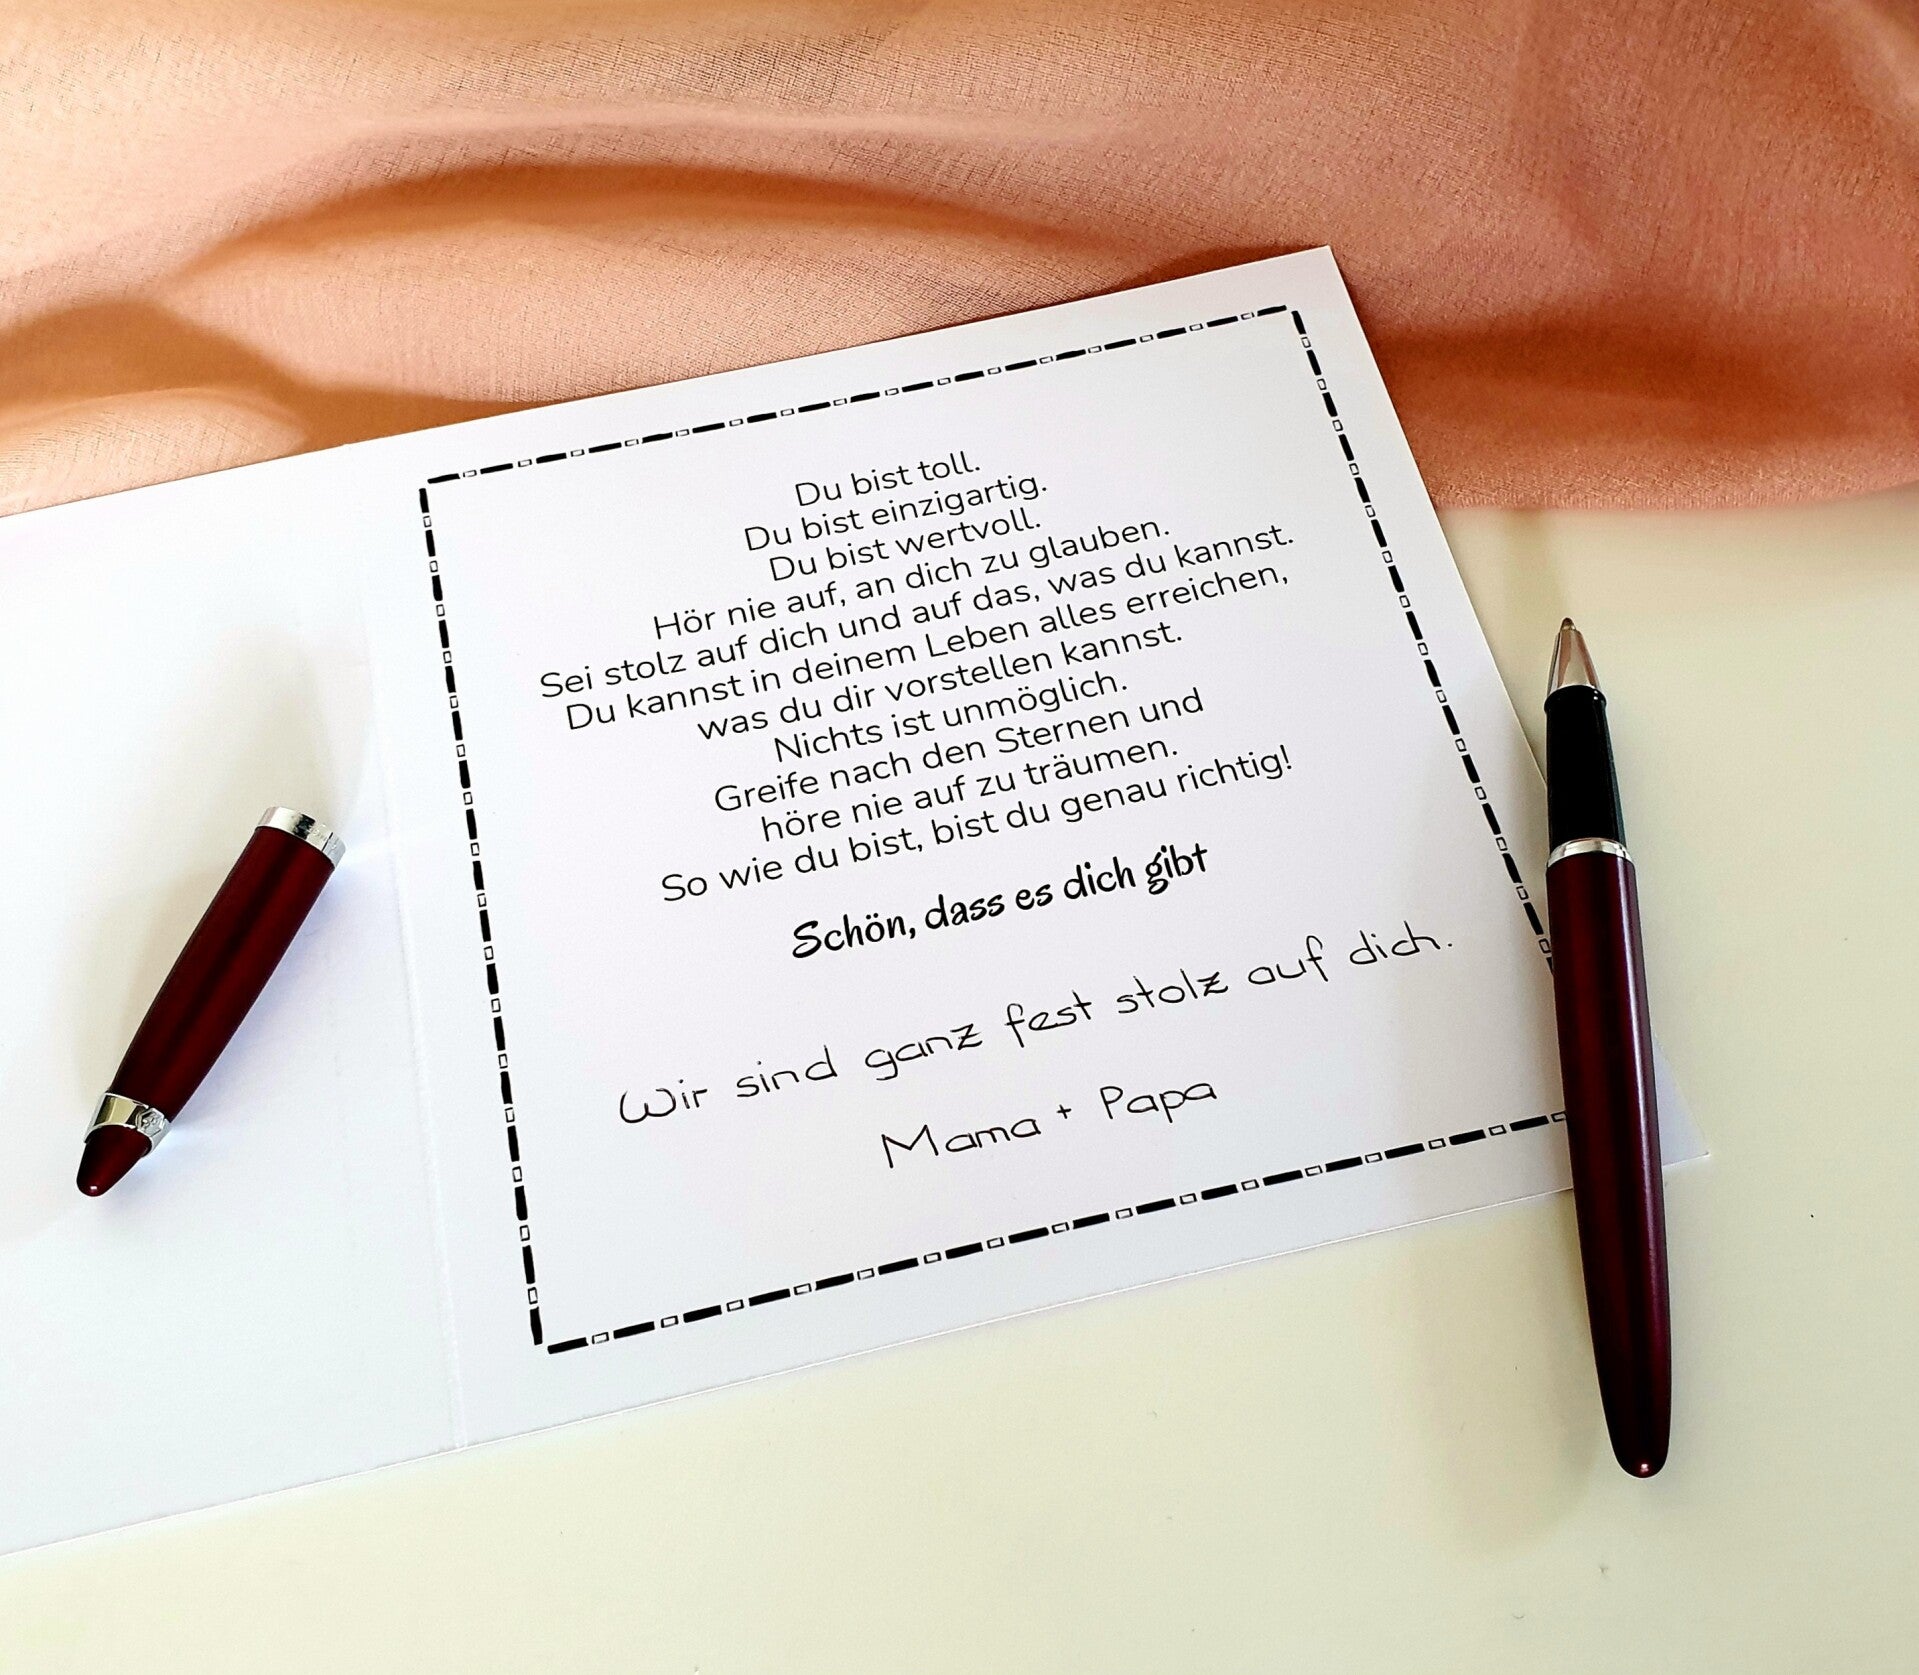 Du bist toll.
Du bist einzigartig.
Du bist wertvoll.
Hör nie auf, an dich zu glauben.
Sei stolz auf dich und auf das, was du kannst.
Du kannst in deinem Leben alles erreichen,
was du dir vorstellen kannst.
Nichts ist unmöglich.
Greife nach den Sternen und
höre nie auf zu träumen.
So wie du bist, bist du genau richtig!
Schön, dass es dich gibt
Wir sind ganz fest stolz auf dich.
Mama + Papa